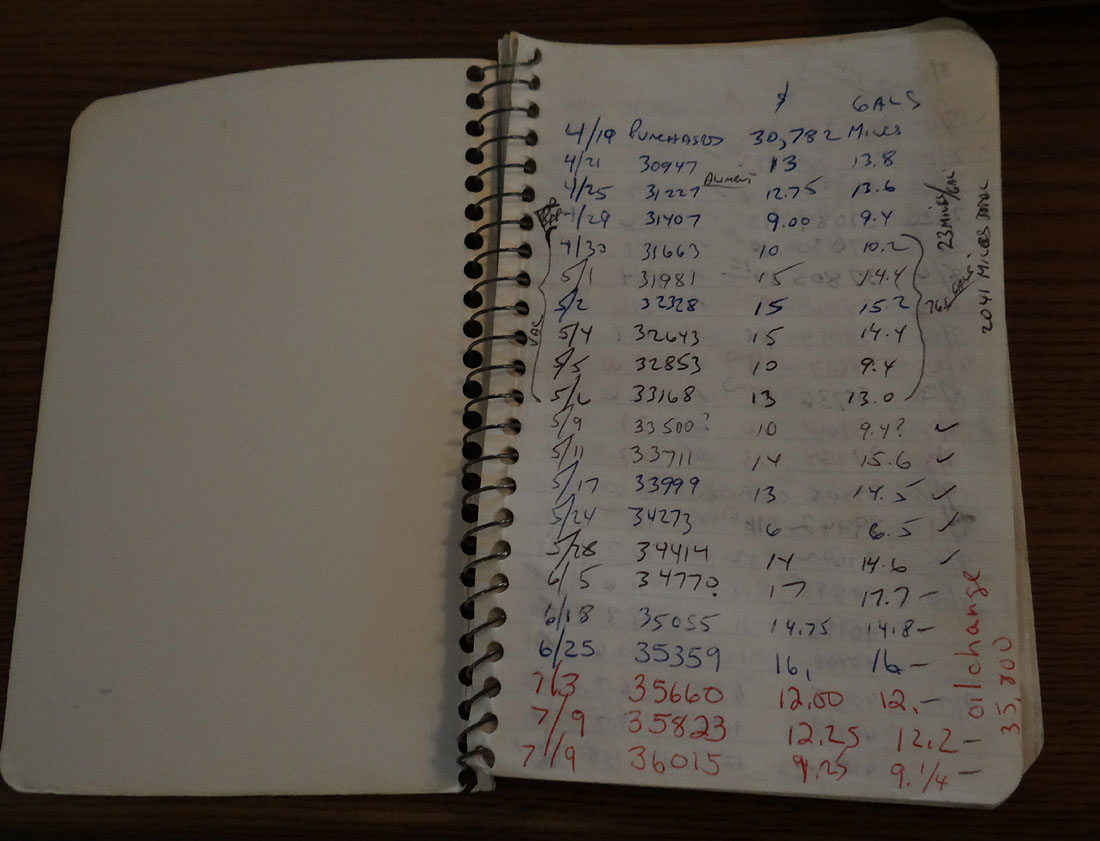 $ GALS
4/19 PURCHASED 30,782 MILES
4/21 30947 13 13.8
4/25 31227 12.75 13.6
4/29 31407 9.00 9.4
4/30 31663 10 10.2
5/1 31981 15 14.4
5/2 32328 15 15.2
5/4 32643 15 14.4
5/5 32853 10 9.4
5/6 33168 13 13.0
VAC
23 MILES/GAL
76
2041 MILES
5/9 33500? 10 9.4? ✓
5/11 33711 14 15.6 ✓
5/17 33999 13 14.5 ✓
5/24 34273 16 - 6.5 ✓
5/28 34414 14 14.6 ✓
6/5 34770 17 17.7 -
6/18 35055 14.75 14.8 -
6/25 35359 16, 16 -
7/3 35660 12.00 12. -
7/9 35823 12.25 12.2 -
7/9 36015 9.25 9.1/4 -
oil change
35,800